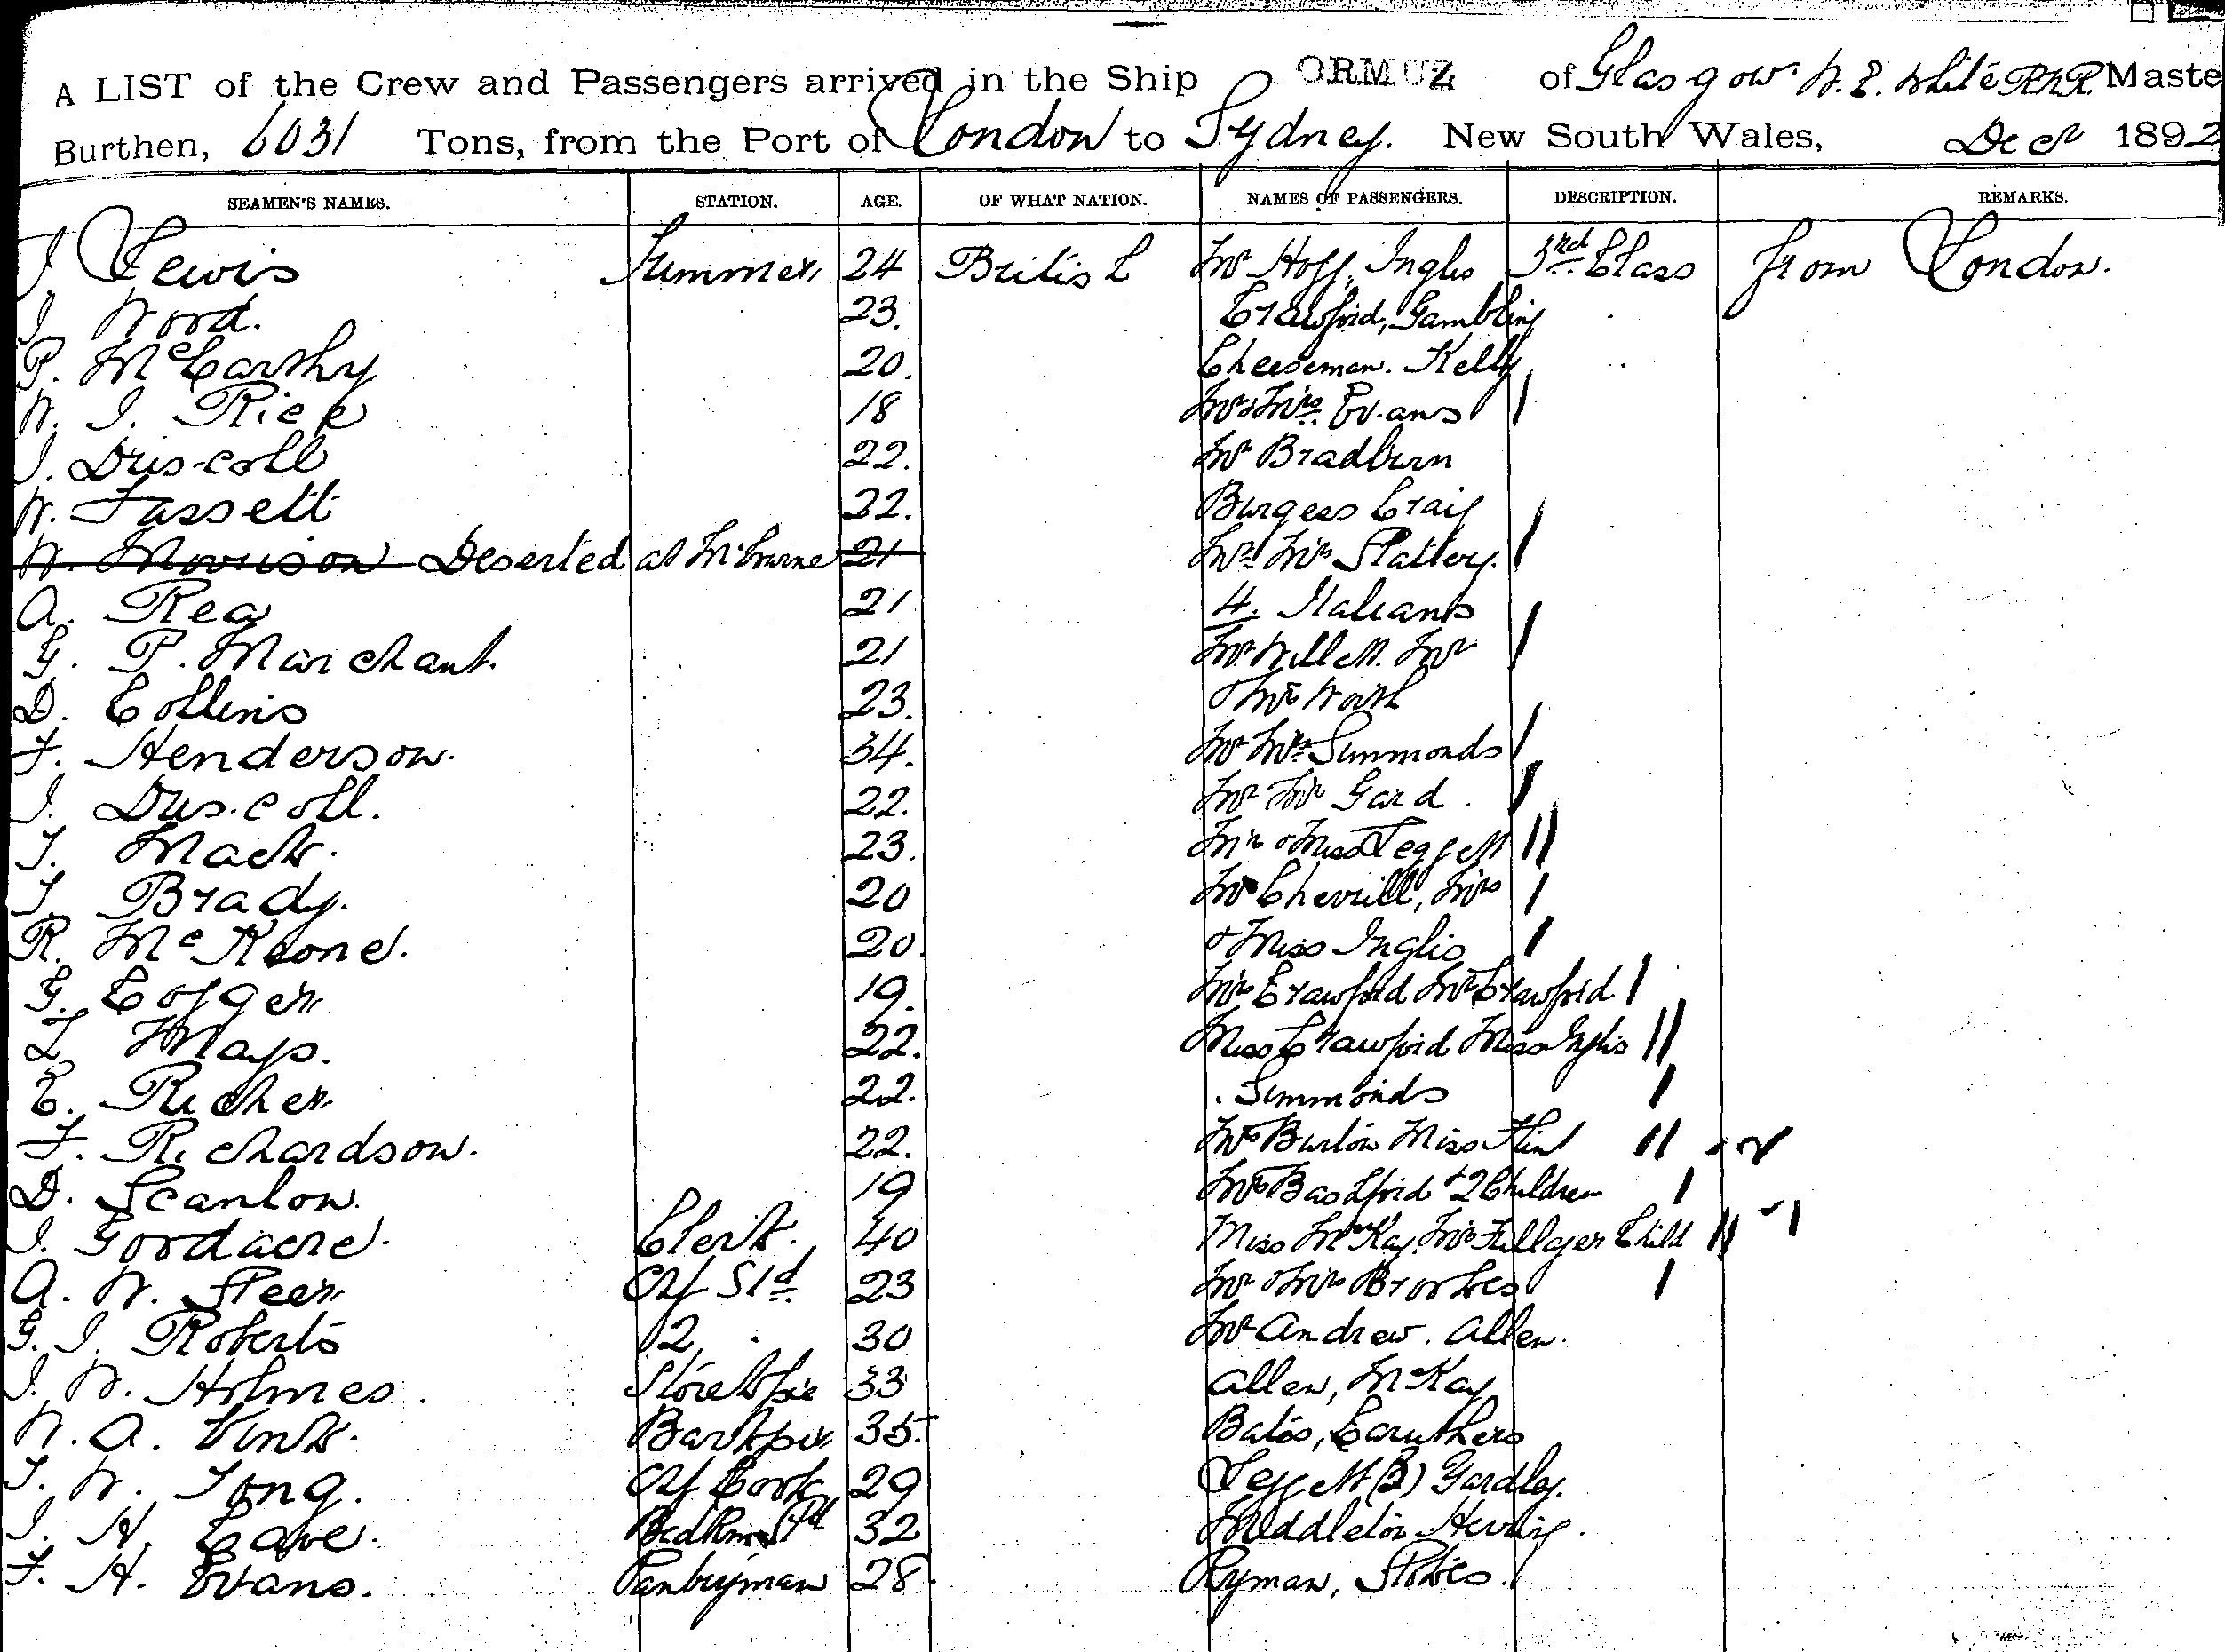 A LIST of the Crew and Passengers arrived in the Ship ORMUZ of Glasgow W. E. White RNR. Maste
Burthen, 6031 Tons, from the Port of London to Sydney. New South Wales, Decr 1892
SEAMEN'S NAMES. STATION. AGE. OF WHAT NATION. NAMES OF PASSENGERS. DESCRIPTION. REMARKS.
J. Lewis Trimmer 24 British Mr Hoff, Inglis 3rd Class from London.
J. Word. 23. Crawford, Gambling
P. McCarthy 20. Cheeseman. Kelly
W. J. Rice 18 Mr & Mrs Evans
J. Driscoll 22. Mr Bradburn
W. Fassett 22. Burgess Craig
W. Morrison Deserted at Mburne 21 Mr Mrs Slattery.
A. Rea 21 4. Italians
G. P. Marchant. 21 Mr Mr
D. Collins 23. & Mrs Worth
F. Henderson. 34. Mr Mrs Simmonds
J. Driscoll. 22. Mr Mrs Gard.
T. Mack. 23. Mrs & Miss Leggett
T. Brady. 20 Mr Cheverill, Mrs
R. McKeone. 20. & Miss Inglis
G. Colger 19. Mrs Crawford Mr Crawford
L. Mays. 22. Miss Crawford Miss Inglis
C. Richer 22. Simmonds
F. Richardson. 22. Mrs Burton Miss Flint
D. Scanlon. 19 Mrs Bashford & 2 Children
J. Goodacre. Clerk. 40 Miss McKay, Mrs Fullager Child
A. W. Steer Chf Std. 23 Mr & Mrs Brookes
G. J. Roberts 2 30 Mr Andrew. Allen.
J. W. Holmes. Storekpr 33 Allen, McKay
W. A. Vink. Barkpr 35. Bates, Caruthers
T. W. Tong. Chf Cook 29 Leggett (B) Yardley.
J. H. Cave. BedRm Std 32 Middleton
F. H. Evans. Pantryman 28. Ryman, Stokes.